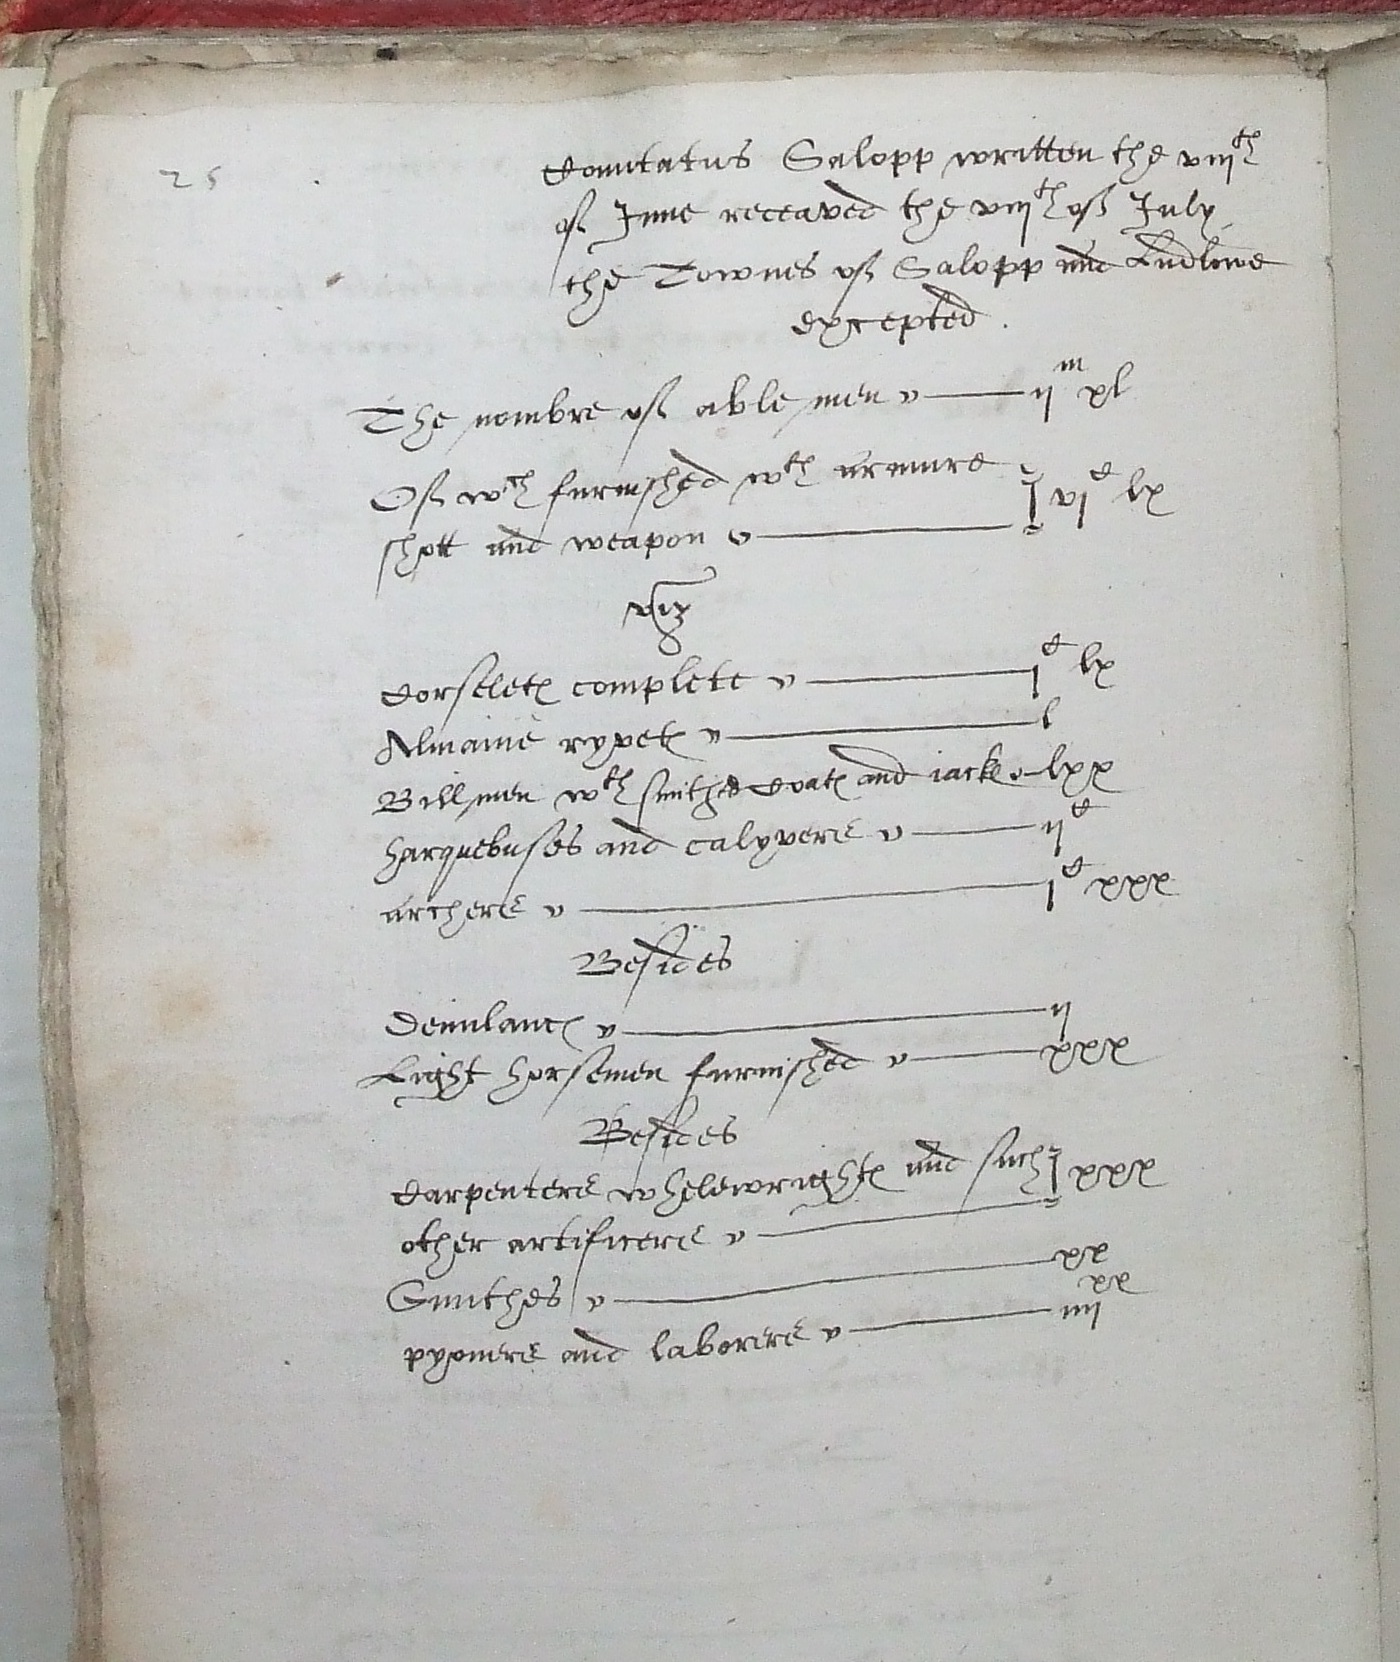 25
Comitatus Salopp written the viijth
of June receaved the viijth of July
the Townes of Salopp and Ludlowe
excepted.
The nombre of able men ijm xl
Of wch furnished wth armure
shott and weapon vjc lx
viz
Corselets complete jc lx
Almaine ryvets l
Billmen wth smithes Coats and jacks lxx
harquebuses and calyvers ijc
archers jc xxx
Besides
Demilancs ij
Light horsemen furnished xxx
Besides
Carpenters whelewrights and such
other artificers xxx
Smithes xx
pyoners and laborers iiijxx